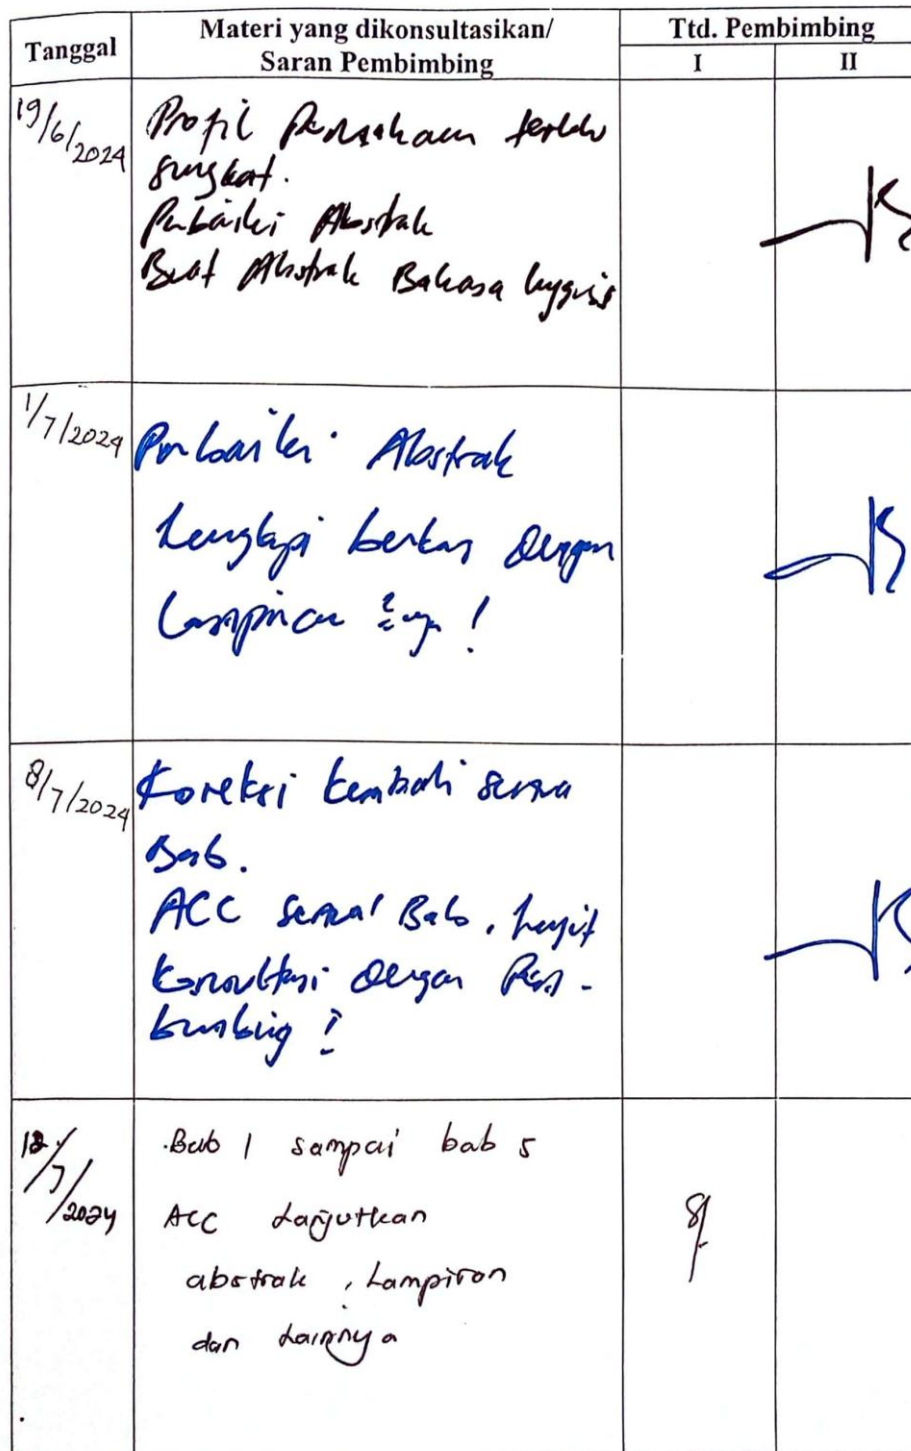 Tanggal
Materi yang dikonsultasikan/
Saran Pembimbing
Ttd. Pembimbing
I
II
19/6/2024
Profil Perusahaan terlalu
singkat.
Perbaiki Abstrak
Buat Abstrak Bahasa Inggris
1/7/2024
Perbaiki Abstrak
Lengkapi berkas dengan
Lampiran
8/7/2024
Koreksi kembali semua
Bab.
ACC semua Bab, lanjut
Konsultasi dengan Pem-
bimbing I
/7/2024
Bab 1 sampai bab 5
ACC Lanjutkan
abstrak, Lampiran
dan Lainnya